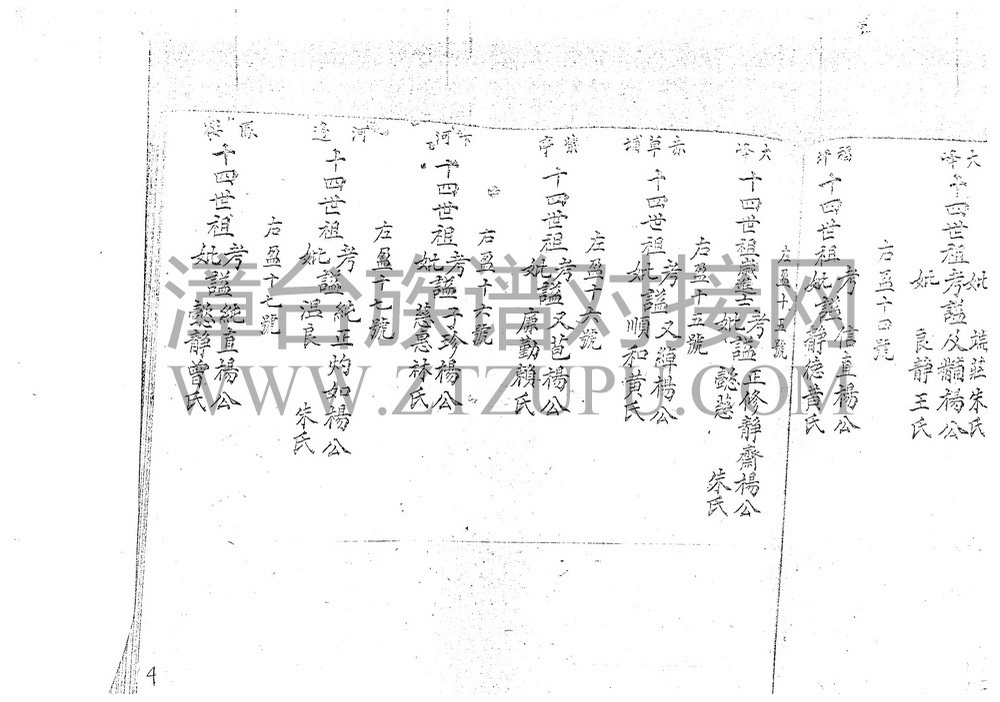 大峰
妣 端莊朱氏
十四世祖考謚及黼楊公
妣 良静王氏
右盈十四號
十四世祖考 信直楊公
妣謚静德黄氏
左盈十五號
大峰
十四世祖歲進士考 正修静齋楊公
妣謚懿慈 朱氏
右盈十五號
赤草埔
十四世祖考謚又綽楊公
妣 順和黄氏
左盈十六號
紫亭
十四世祖考謚又苞楊公
妣 廉勤賴氏
右盈十六號
下河
十四世祖考謚子珍楊公
妣 慈惠林氏
左盈十七號
河邊
十四世祖考謚純正灼如楊公
妣 温良 朱氏
右盈十七號
十四世祖考謚純直楊公
妣 懿静曾氏
4
漳台族谱对接网
WWW.ZTZUPU.COM